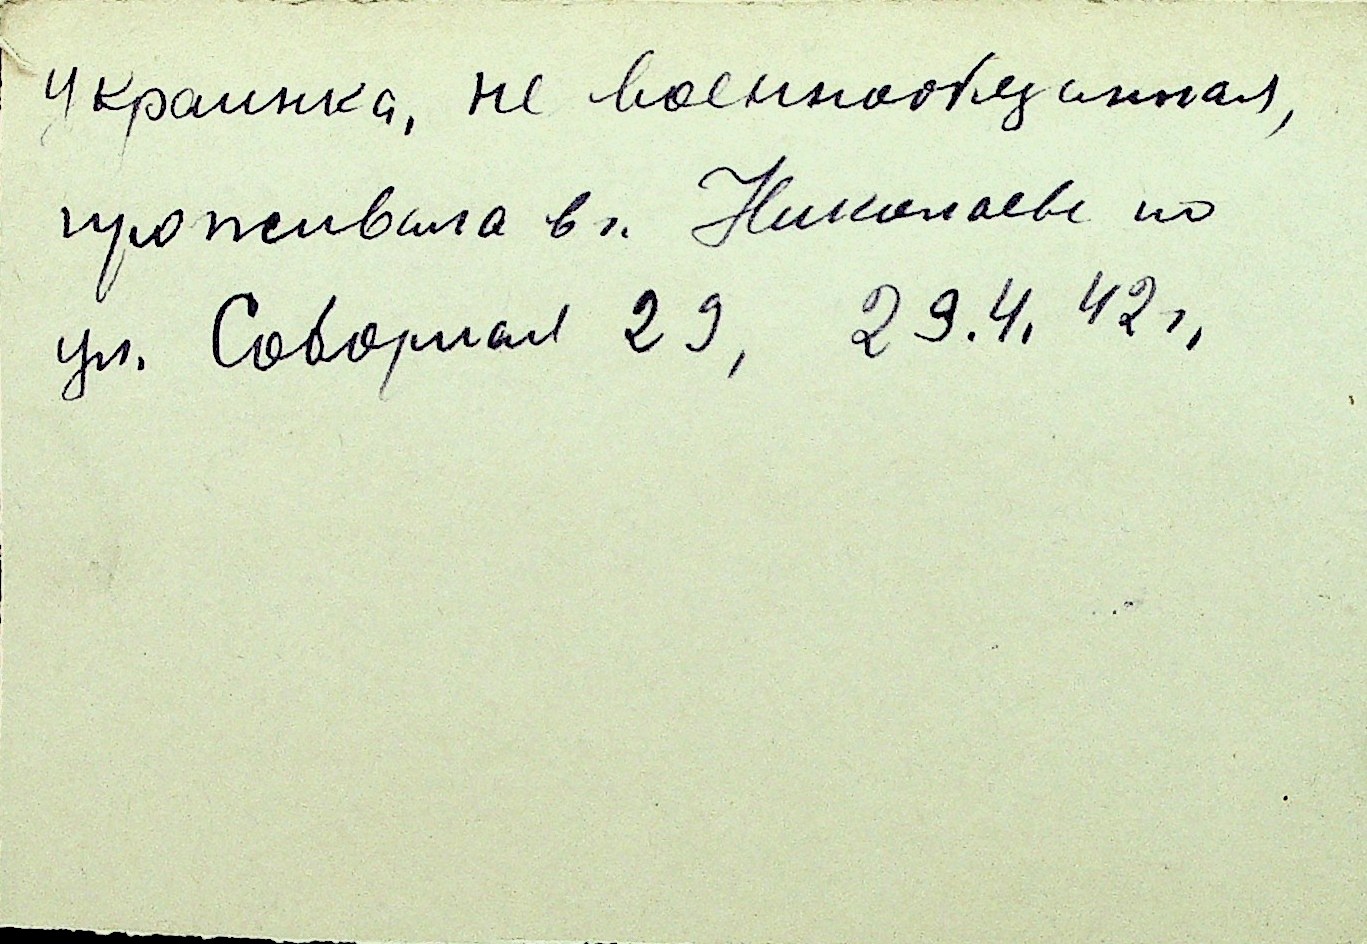 Украинка, не военнообязанная,
проживала в г. Николаеве по
ул. Соборная 29, 29.4.42г.